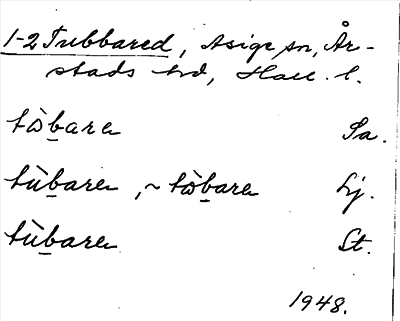 1-2 Tubbared, Asige sn, År-
stads hd, Hall. l.
tòbaren Sa.
tùbaren, ~ tòbaren Lj.
tùbaren St.
1948.